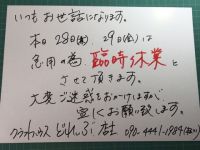 いつもお世話になります。
本日28日(木)、29日(金)は
急用の為、臨時休業と
させて頂きます。
大変ご迷惑をおかけしますが、
宜しくお願い致します。
クラフトハウス どれんぷ 店主 090-4441-1989